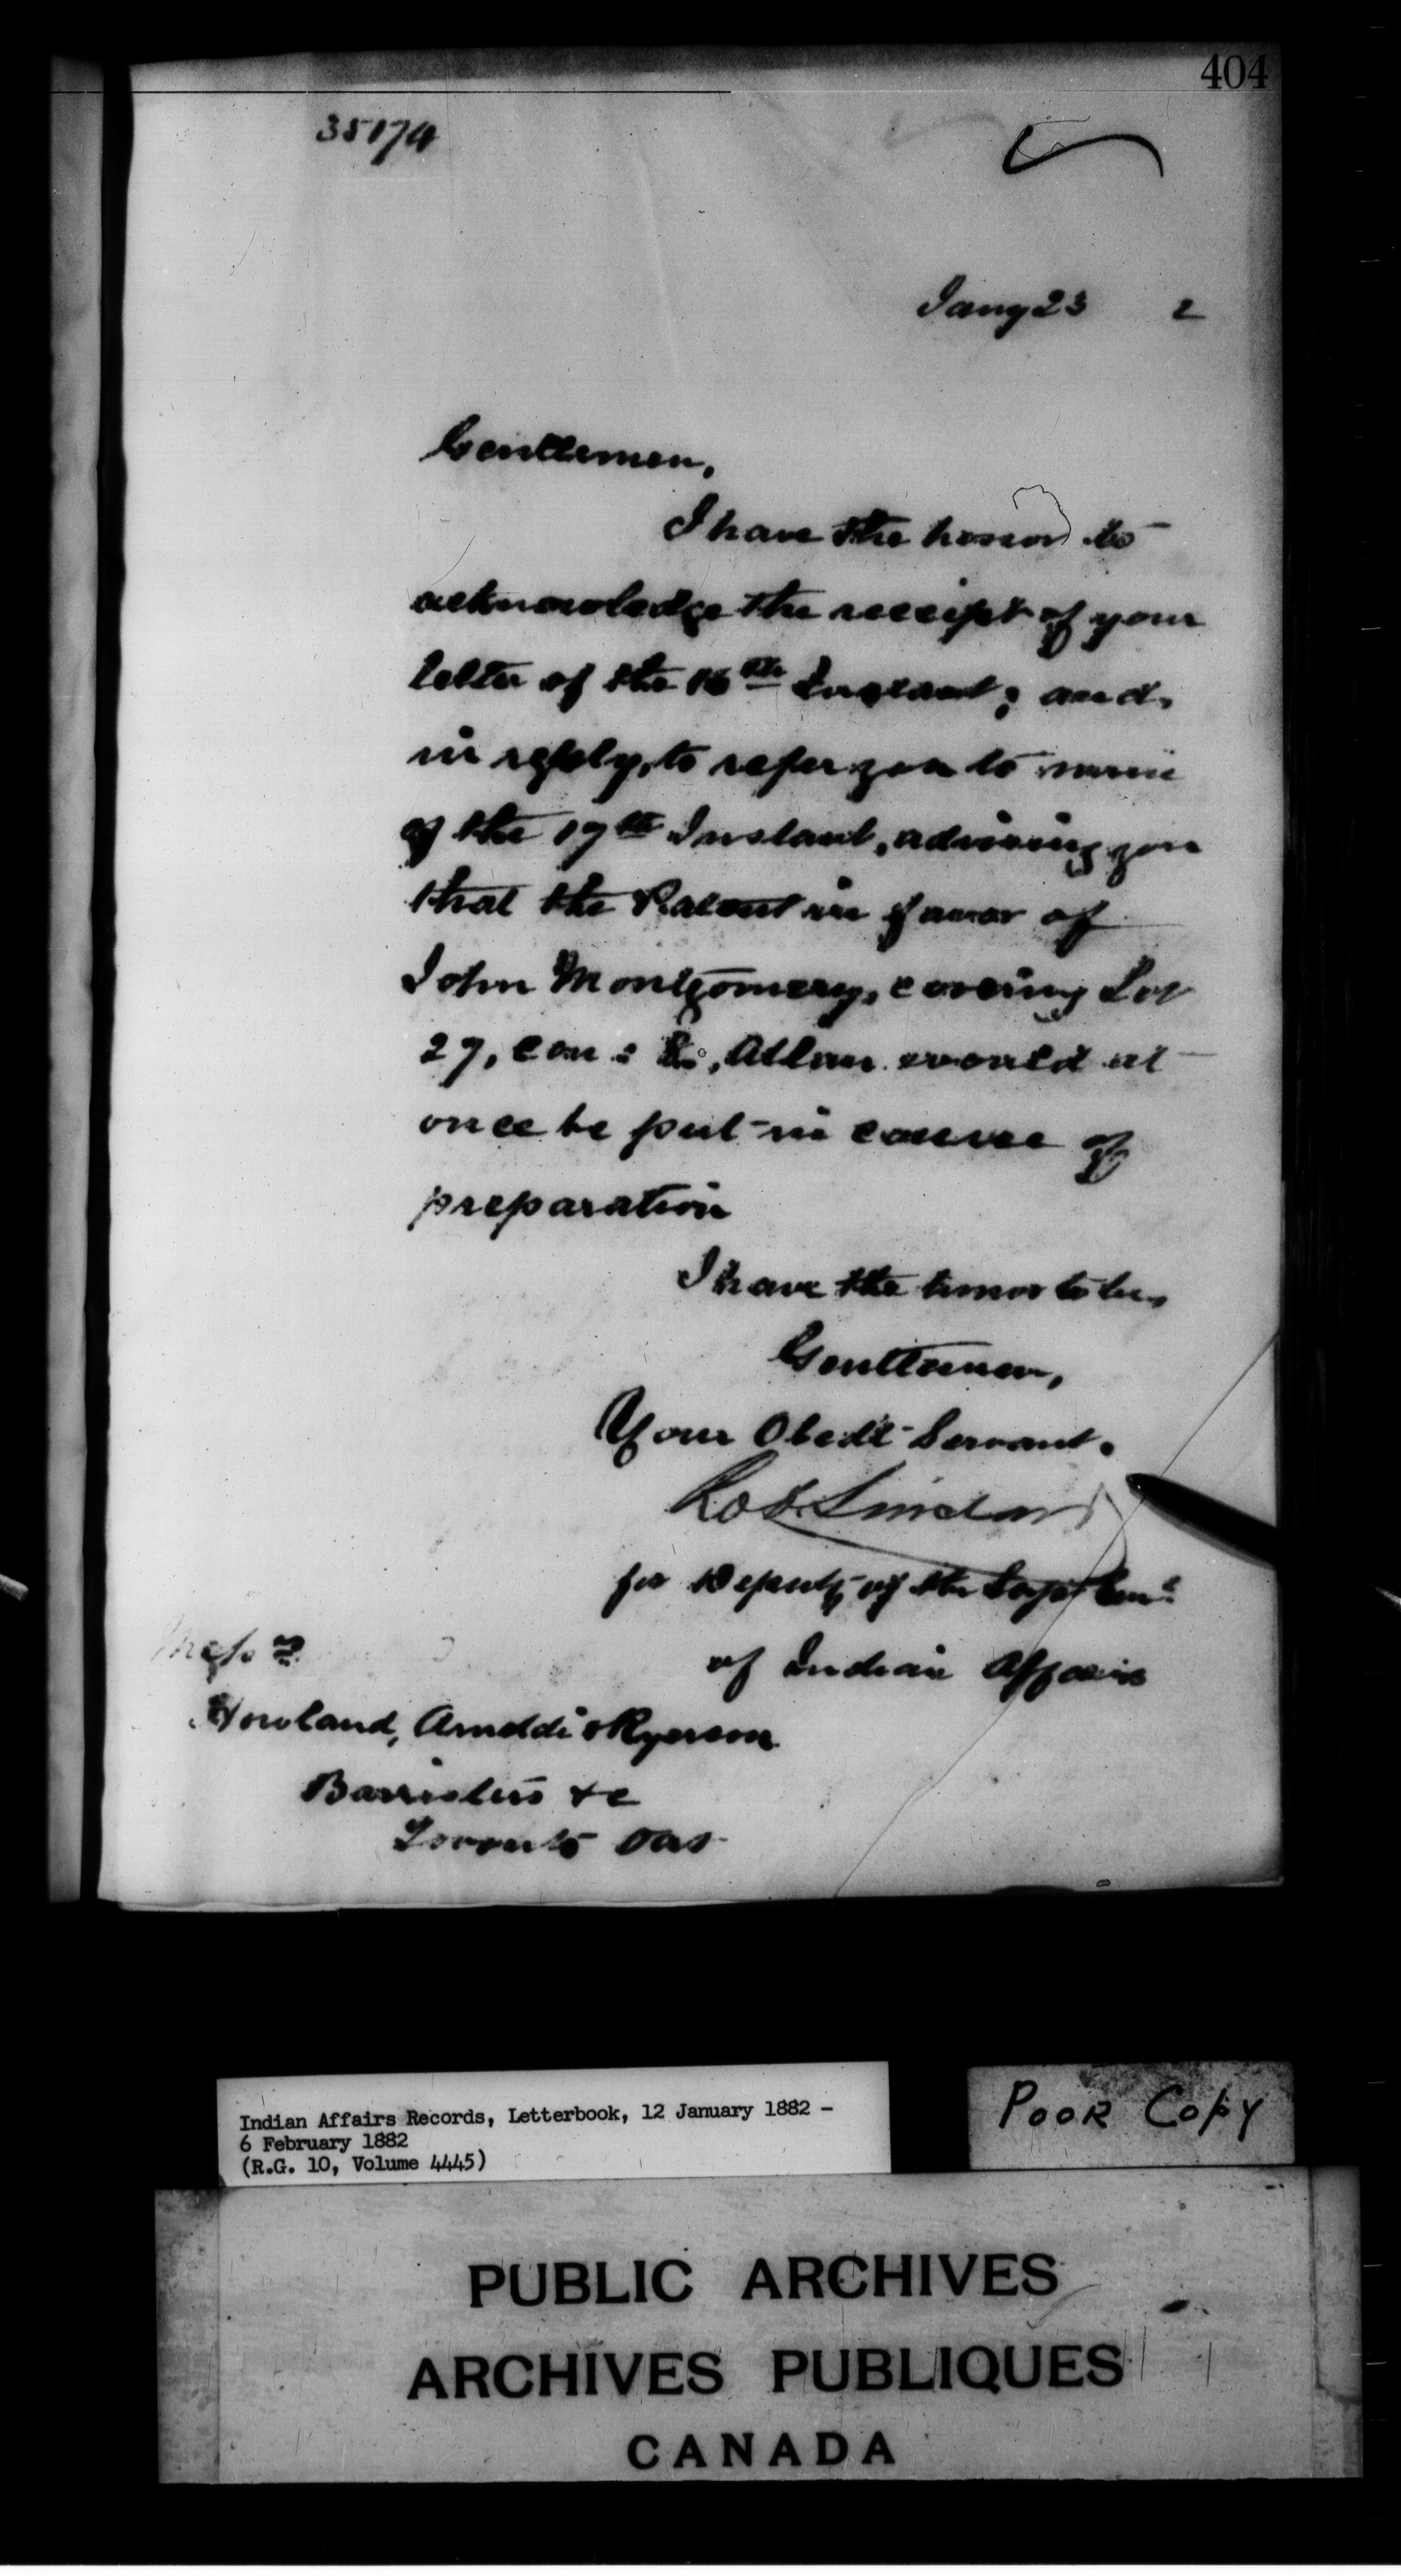 404
35174
Jany 23 2
Gentlemen,
I have the honor to
acknowledge the receipt of your
letter of the 16th Instant; and,
in reply, to refer you to mine
of the 17th Instant, advising you
that the Patent in favor of
John Montgomery, covering Lot
27, con: Allan would at
once be put in course of
preparation
I have the honor to be,
Gentlemen,
Your Obedt Servant.
Robt Sinclair
for Deputy of the Supt Genl
of Indian Affairs
Messrs
Howland, Arnoldi & Ryerson
Barristers &c
Toronto Ont
Indian Affairs Records, Letterbook, 12 January 1882 -
6 February 1882
(R.G. 10, Volume 4445)
POOR COPY
PUBLIC ARCHIVES
ARCHIVES PUBLIQUES
CANADA